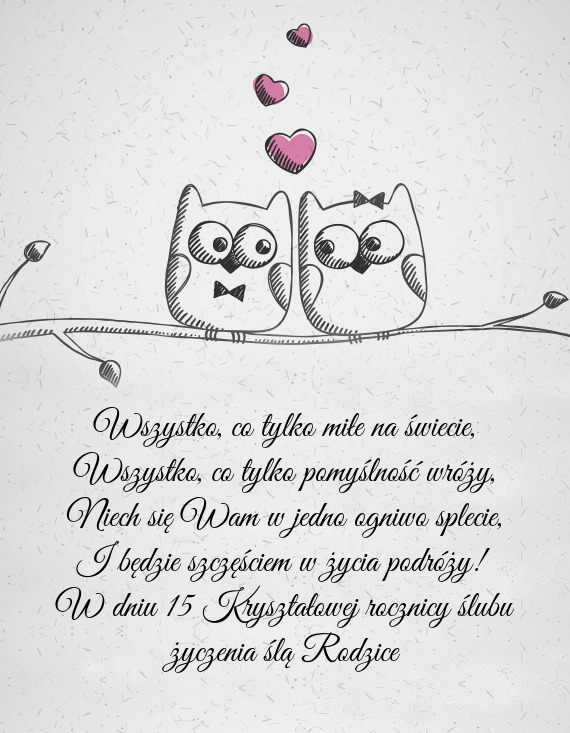 Wszystko, co tylko miłe na świecie,
Wszystko, co tylko pomyślność wróży,
Niech się Wam w jedno ogniwo splecie,
I będzie szczęściem w życia podróży!
W dniu 15 Kryształowej rocznicy ślubu
życzenia ślą Rodzice